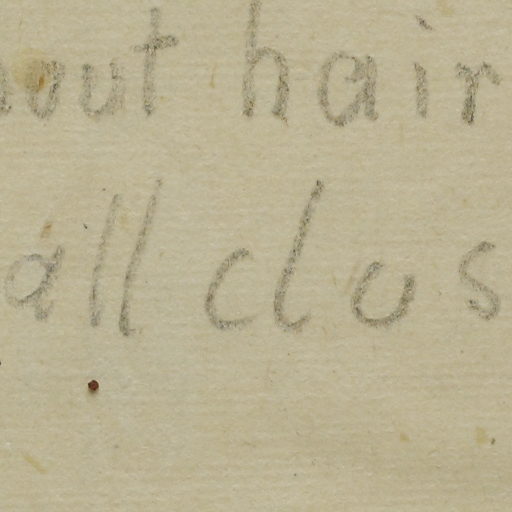 out hair
all clos